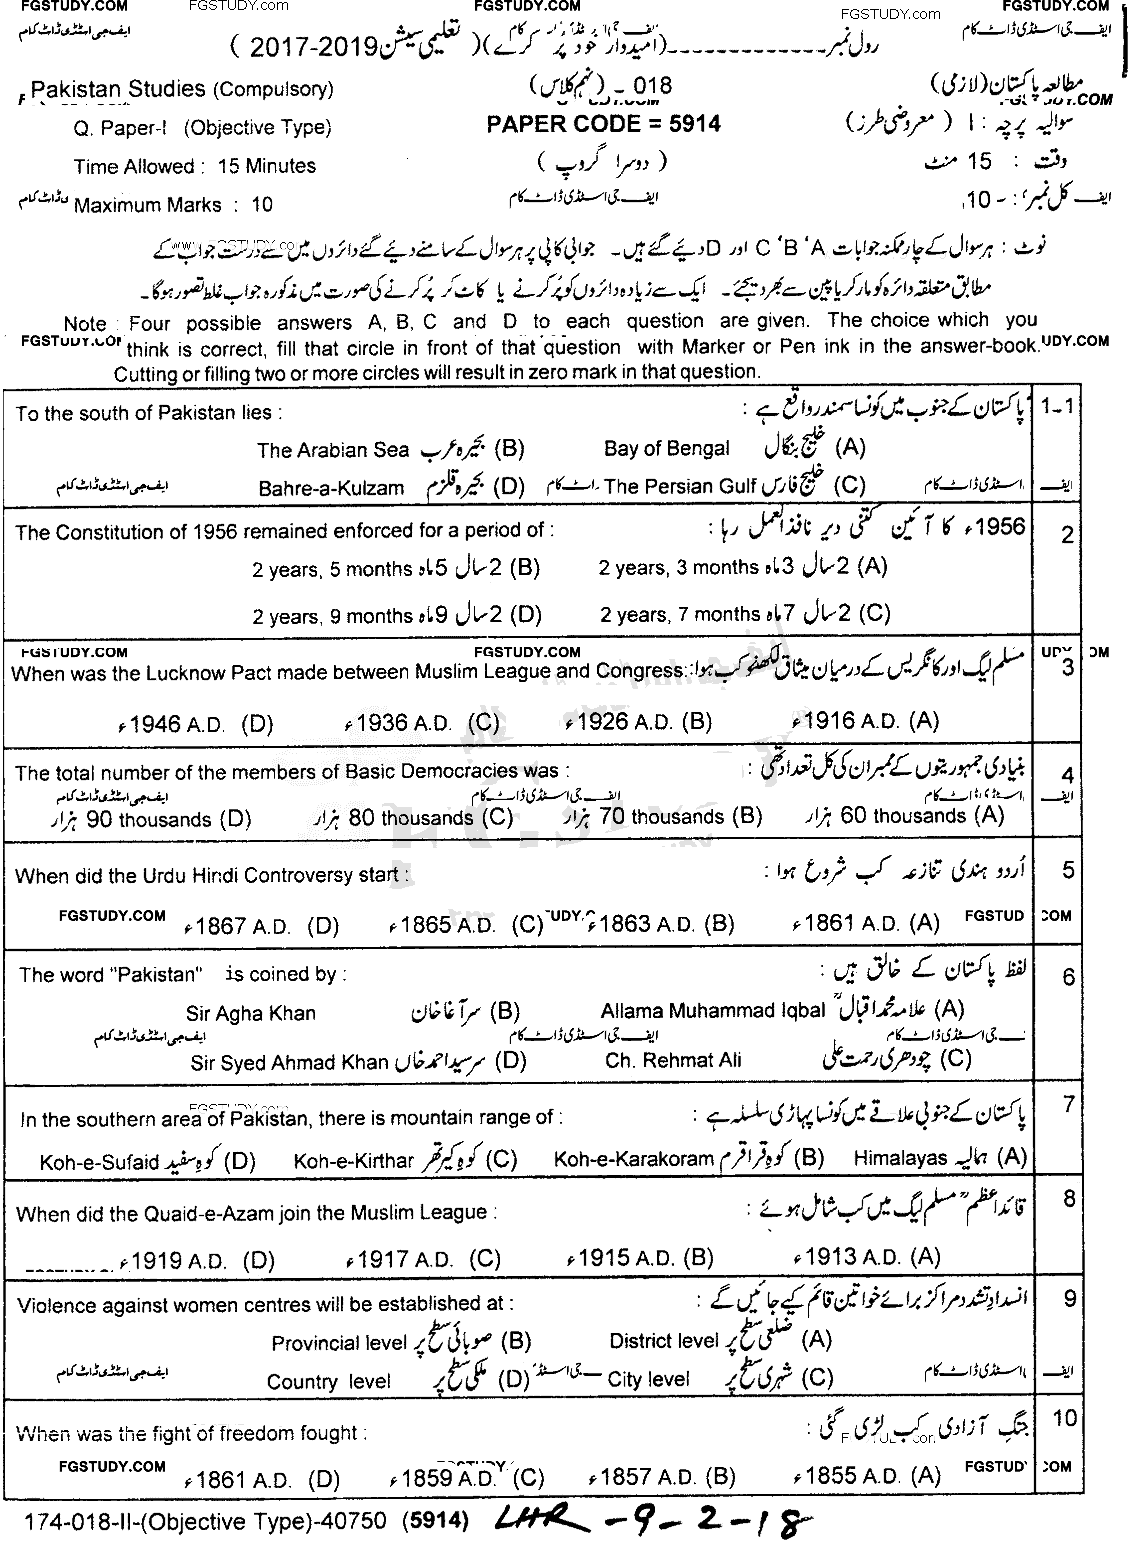 FGSTUDY.COM FGSTUDY.com FGSTUDY.COM FGSTUDY.com FGSTUDY.COM
ایف جی اسٹڈی ڈاٹ کام
رول نمبر ------------- (امیدوار خود پر کرے) ( تعلیمی سیشن 2017-2019 )
Pakistan Studies (Compulsory) 018 - (نہم کلاس) مطالعہ پاکستان (لازمی)
Q. Paper-I (Objective Type) PAPER CODE = 5914 سوالیہ پرچہ : I ( معروضی طرز )
Time Allowed : 15 Minutes ( دوسرا گروپ ) وقت : 15 منٹ
Maximum Marks : 10 ایف جی اسٹڈی ڈاٹ کام کل نمبر : - 10
نوٹ : ہر سوال کے چار ممکنہ جوابات A ' B ' C اور D دیئے گئے ہیں۔ جوابی کاپی پر ہر سوال کے سامنے دیئے گئے دائروں میں سے درست جواب کے
مطابق متعلقہ دائرہ کو مارکر یا پین سے بھر دیجئے۔ ایک سے زیادہ دائروں کو پُر کرنے یا کاٹ کر پُر کرنے کی صورت میں مذکورہ جواب غلط تصور ہوگا۔
Note : Four possible answers A, B, C and D to each question are given. The choice which you
think is correct, fill that circle in front of that question with Marker or Pen ink in the answer-book.
Cutting or filling two or more circles will result in zero mark in that question.
To the south of Pakistan lies : پاکستان کے جنوب میں کونسا سمندر واقع ہے : 1-1
The Arabian Sea بحیرہ عرب (B) Bay of Bengal خلیج بنگال (A)
Bahre-a-Kulzam بحیرہ قلزم (D) The Persian Gulf خلیج فارس (C)
The Constitution of 1956 remained enforced for a period of : 1956ء کا آئین کتنی دیر نافذ العمل رہا : 2
2 years, 5 months 2 سال 5 ماہ (B) 2 years, 3 months 2 سال 3 ماہ (A)
2 years, 9 months 2 سال 9 ماہ (D) 2 years, 7 months 2 سال 7 ماہ (C)
FGSTUDY.COM FGSTUDY.COM
When was the Lucknow Pact made between Muslim League and Congress: مسلم لیگ اور کانگریس کے درمیان میثاق لکھنؤ کب ہوا: 3
ء1946 A.D. (D) ء1936 A.D. (C) ء1926 A.D. (B) ء1916 A.D. (A)
The total number of the members of Basic Democracies was : بنیادی جمہوریتوں کے ممبران کی کل تعداد تھی : 4
ایف جی اسٹڈی ڈاٹ کام
90 thousands ہزار (D) 80 thousands ہزار (C) 70 thousands ہزار (B) 60 thousands ہزار (A)
When did the Urdu Hindi Controversy start : اُردو ہندی تنازعہ کب شروع ہوا : 5
FGSTUDY.COM ء1867 A.D. (D) ء1865 A.D. (C) ء1863 A.D. (B) ء1861 A.D. (A)
The word "Pakistan" is coined by : لفظ پاکستان کے خالق ہیں : 6
Sir Agha Khan سر آغا خان (B) Allama Muhammad Iqbal علامہ محمد اقبال (A)
ایف جی اسٹڈی ڈاٹ کام
Sir Syed Ahmad Khan سرسید احمد خاں (D) Ch. Rehmat Ali چودھری رحمت علی (C)
In the southern area of Pakistan, there is mountain range of : پاکستان کے جنوبی علاقے میں کونسا پہاڑی سلسلہ ہے : 7
Koh-e-Sufaid کوہ سفید (D) Koh-e-Kirthar کوہ کیرتھر (C) Koh-e-Karakoram کوہ قراقرم (B) Himalayas ہمالیہ (A)
When did the Quaid-e-Azam join the Muslim League : قائداعظم مسلم لیگ میں کب شامل ہوئے : 8
ء1919 A.D. (D) ء1917 A.D. (C) ء1915 A.D. (B) ء1913 A.D. (A)
Violence against women centres will be established at : انسداد تشدد مراکز برائے خواتین قائم کیے جائیں گے : 9
Provincial level صوبائی سطح پر (B) District level ضلعی سطح پر (A)
Country level ملکی سطح پر (D) City level شہری سطح پر (C)
When was the fight of freedom fought : جنگ آزادی کب لڑی گئی : 10
FGSTUDY.COM ء1861 A.D. (D) ء1859 A.D. (C) ء1857 A.D. (B) ء1855 A.D. (A)
174-018-II-(Objective Type)-40750 (5914) LHR - 9 - 2 - 18